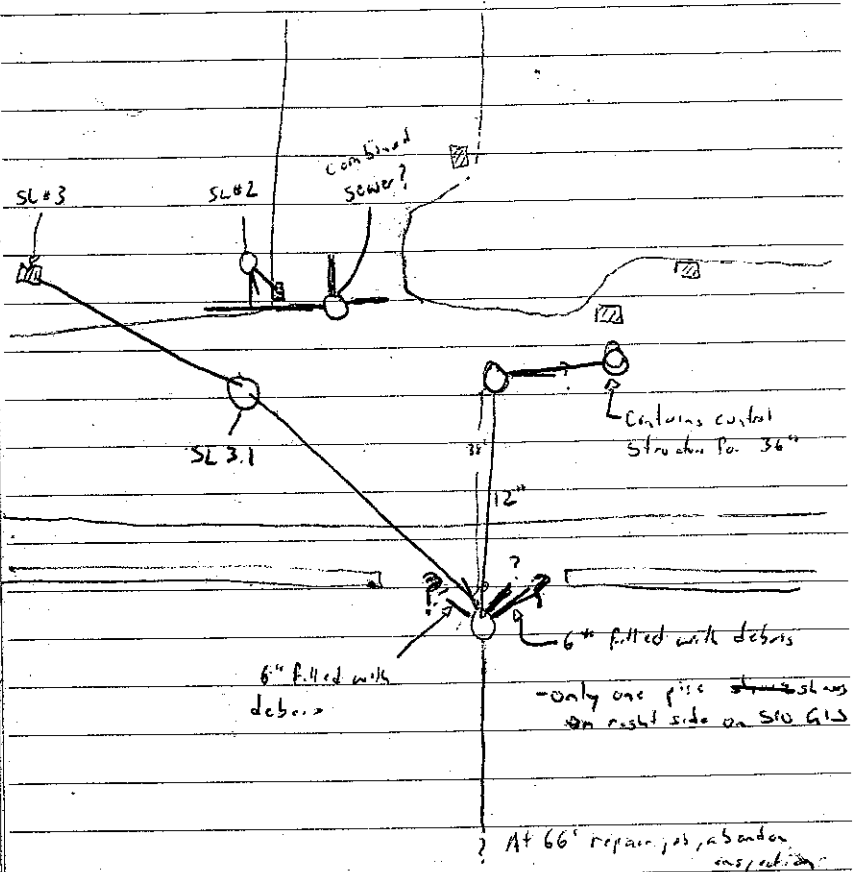 combined
sewer?
SL#3
SL#2
?
Contains control
Structure for 36"
SL 3.1
38'
12"
?
?
?
6" filled with debris
6" filled with
debris
-only one pipe shows
on right side on SW GIS
? At 66' repair job, abandon
inspection